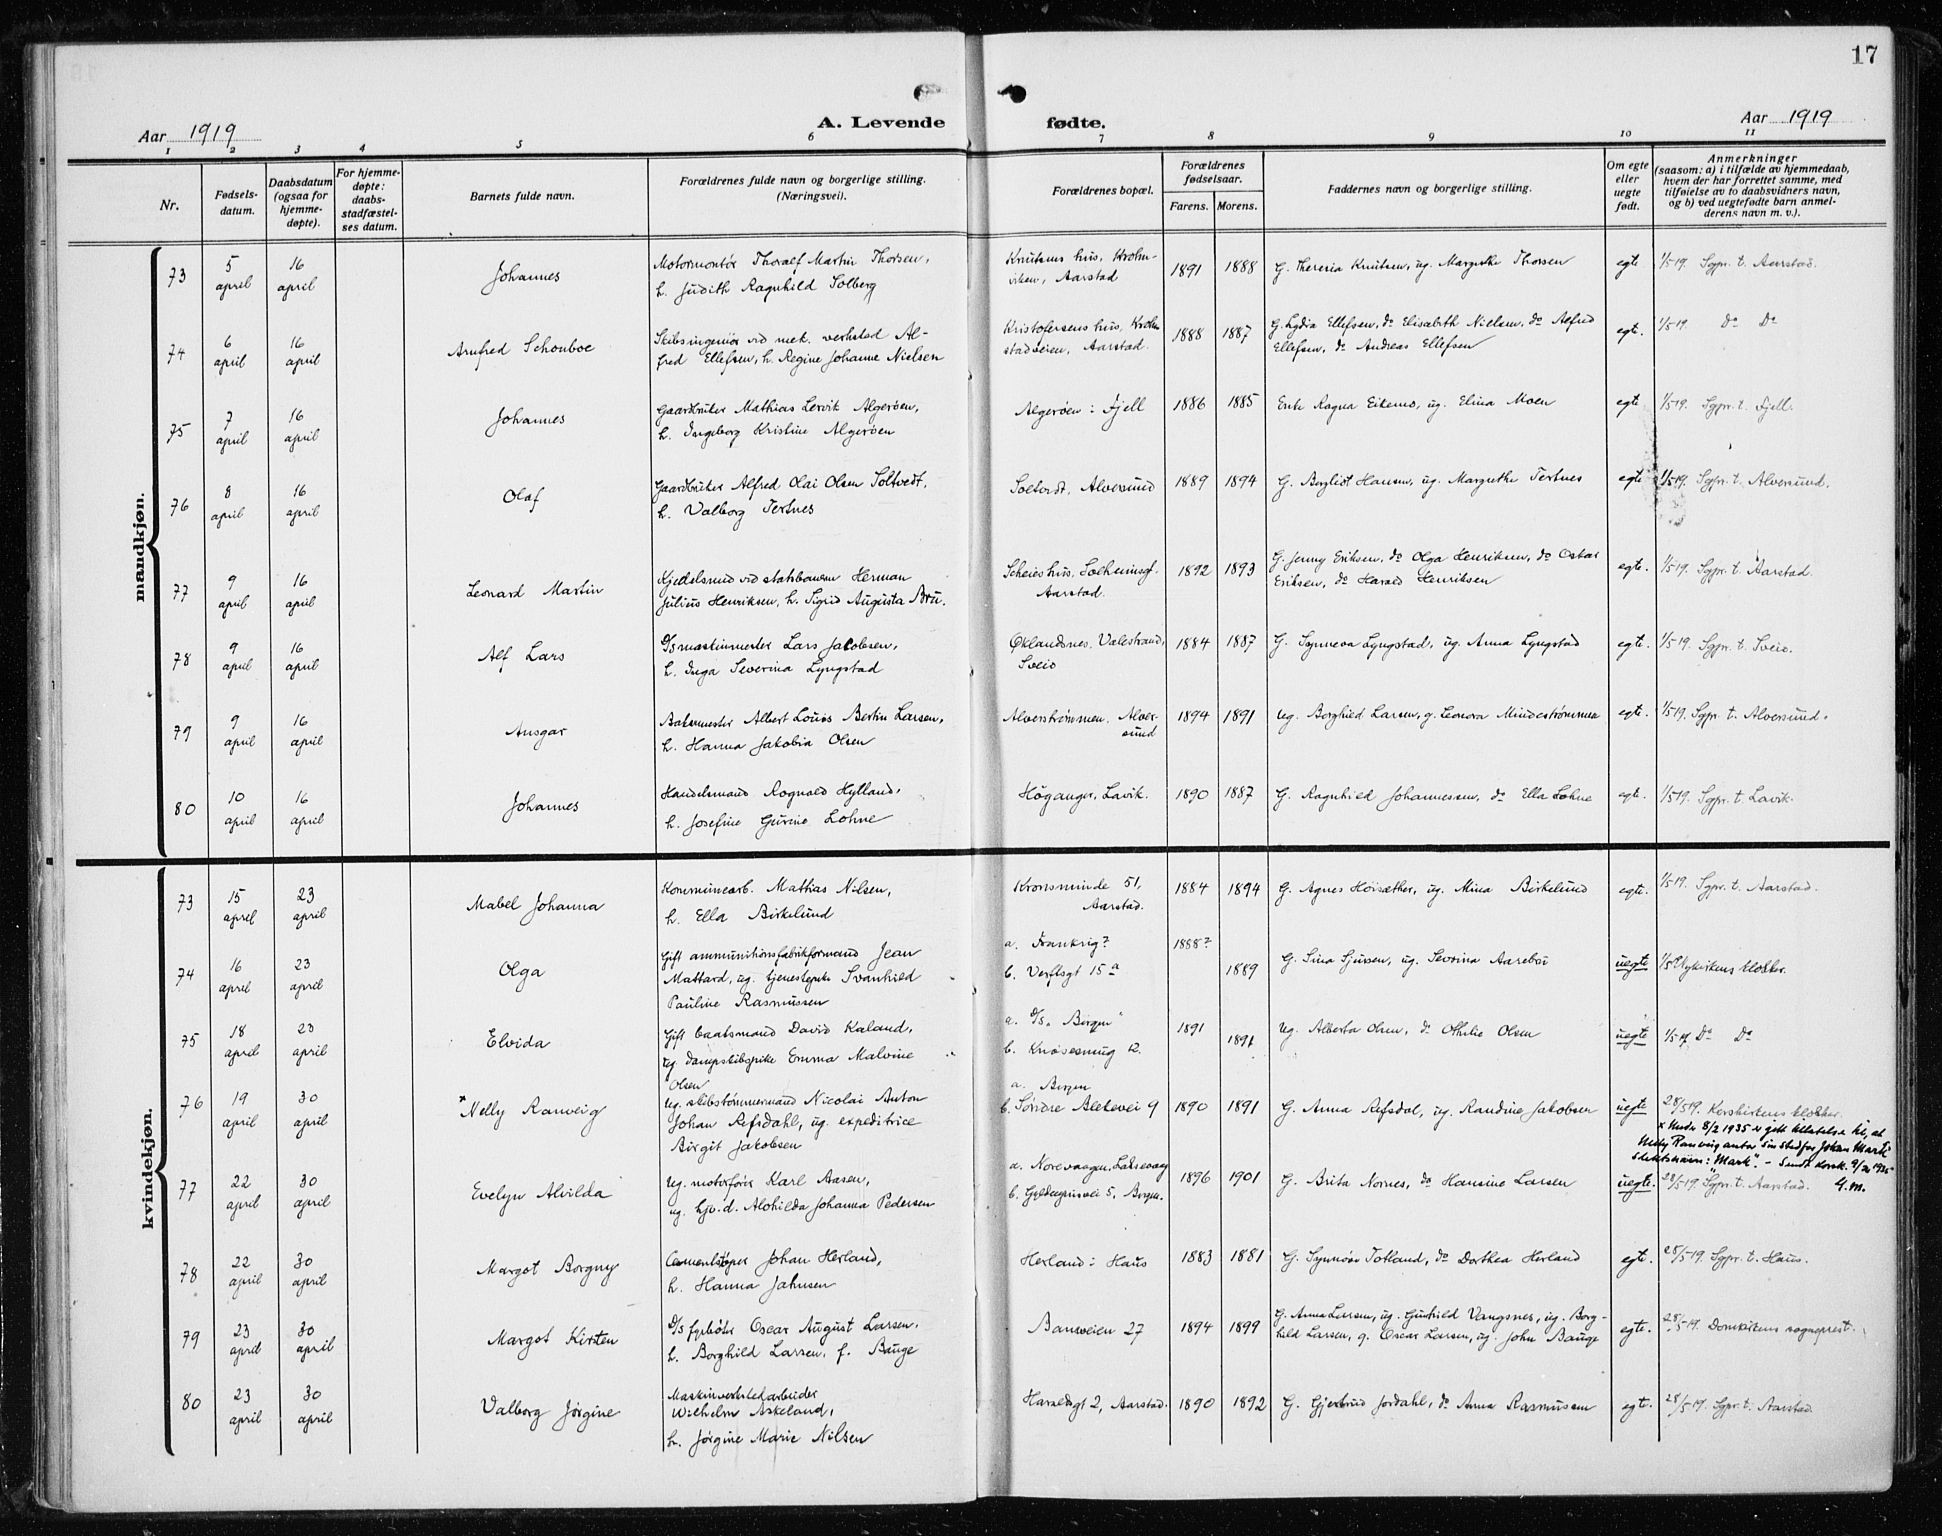 17
Aar 1919
A. Levende fødte.
Aar 1919
1 2 3 4 5 6 7 8 9 10 11
Nr.
Fødsels-
datum.
Daabsdatum
(ogsaa for
hjemme-
døpte).
For hjemme-
døpte:
daabs-
stadfæstel-
ses datum.
Barnets fulde navn.
Forældrenes fulde navn og borgerlige stilling.
(Næringsvei).
Forældrenes bopæl.
Forældrenes
fødselsaar.
Farens. Morens.
Faddernes navn og borgerlige stilling.
Om egte
eller
uegte
født.
Anmerkninger
(saasom: a) i tilfælde av hjemmedaab,
hvem der har forrettet samme, med
tilføielse av to daabsvidners navn,
og b) ved uegtefødte barn anmel-
derens navn m. v.).
mandkjøn.
73 5 april 16 april Johannes
Motormontør Thoralf Martin Thorsen,
h. Judith Ragnhild Solberg
Knutsens hus, Krohn-
viken, Aarstad
1891 1888 G. Theresia Knutsen, ug. Margrethe Thorsen egte 1/5 19. Sgpr. t. Aarstad.
74 6 april 16 april Arnfred Schouboe
Skibsingeniør ved mek. verksted Al-
fred Ellefsen, h. Regine Johanne Nielsen
Kristofersens hus, Krohn
stadveien, Aarstad.
1888 1887 G. Lydia Ellefsen, do Elisabeth Nielsen, do Alfred
Ellefsen, do Andreas Ellefsen
egte. 1/5 19. Do Do
75 7 april 16 april Johannes
Gaardbruker Mathias Lervik Algerøen,
h. Ingeborg Kristine Algerøen
Algerøen i Fjell 1886 1885 Enke Ragna Eikemo, ug. Elina Moen egte 1/5 19. Sgpr. t. Fjell.
76 8 april 16 april Olaf
Gaardbruker Alfred Olai Olsen Soltvedt,
h. Valborg Tertnes
Soltvedt, Alversund 1889 1894 G. Bergliot Hansen, ug. Margrethe Tertnes egte 1/5 19. Sgpr. t. Alversund.
77 9 april 16 april Leonard Martin
Kjedelsmed ved statsbanerne Herman
Julius Henriksen, h. Sigrid Augusta Bru.
Scheies hus, Solheimsgt.
Aarstad.
1892 1893 G. Jenny Eriksen, do Olga Henriksen, do Oskar
Eriksen, do Harald Henriksen
egte. 1/5 19. Sgpr. t. Aarstad.
78 9 april 16 april Alf Lars
D/s maskinmester Lars Jakobsen,
h. Inga Severina Lyngstad
Øklandsnes, Valestrand,
Sveio
1884 1887 G. Synneva Lyngstad, ug. Anna Lyngstad egte. 1/5 19. Sgpr. t. Sveio.
79 9 april 16 april Ansgar
Bakermester Albert Louis Bertin Larsen,
h. Hanna Jakobia Olsen
Alverstrømmen, Alver-
sund
1894 1891 ug. Borghild Larsen, g. Leonora Mindestrømmen egte. 1/5 19. Sgpr. t. Alversund.
80 10 april 16 april Johannes
Handelsmand Rognald Hylland,
h. Josefine Gurine Lohne
Høganger, Lavik. 1890 1887 G. Ragnhild Johannessen, do Ella Lohne egte. 1/5 19. Sgpr. t. Lavik.
kvindekjøn.
73 15 april 23 april Mabel Johanna
Kommunearb. Mathias Nilsen,
h. Ella Birkelund
Kronsminde 51,
Aarstad.
1884 1894 G. Agnes Hoisæther, ug. Mina Birkelund egte. 1/5 19. Sgpr. t. Aarstad.
74 16 april 23 april Olga
Gift ammunitionsfabrikformand Jean
Mattard, ug. tjenestepike Svanhild
Pauline Rasmussen
a. Frankrig?
b. Verftsgt 15 a
1888? 1889 G. Sina Sjursen, ug. Severina Aarebø uegte 1/5 Nykirkens klokker.
75 18 april 23 april Elvida
Gift baatsmand David Kaland,
ug. dampskibspike Emma Malvine
Olsen
a. D/s "Bergen"
b. Knøsesmug 12.
1891 1891 Ug. Alberta Olsen, do Othelie Olsen uegte 1/5 19 Do Do
76 19 april 30 april *Nelly Ranveig
Ug. skibstømmermand Nicolai Anton
Johan Refsdahl, ug. expeditrice
Birgit Jakobsen
a. Bergen
b. Søndre Alekevei 9
1890 1891 G. Anna Refsdal, ug. Randine Jakobsen uegte 28/5 19. Korskirkens klokker.
x Under 8/2 1935 er gitt tillatelse til, at
Nelly Ranveig antar sin stedfar Johan Mark's
slektsnavn: "Mark". – Sendt Korsk. 9/2 1935
G.m.
77 22 april 30 april Evelyn Alvilda
Ug. motorfører Karl Aasen,
ug. hjv. d. Alohilda Johanna Pedersen
a. Norevaagen, Laksevaag
b. Gyldenprisvei 5, Bergen.
1896 1901 G. Brita Nornes, do Hansine Larsen uegte. 28/5 19. Sgpr. t. Aarstad.
78 22 april 30 april Margot Borgny
Cementstøper Johan Herland,
h. Hanna Jahnsen
Herland i Haus 1883 1881 G. Synnøve Totland, do Dorthea Herland egte. 28/5 19. Sgpr. t. Haus.
79 23 april 30 april Margot Kirsten
D/s fyrbøter Oscar August Larsen,
h. Borghild Larsen, f. Bauge
Banveien 27 1894 1899 G. Anna Larsen, ug. Gunhild Vangsnes, ug. Borg-
hild Larsen, g. Oscar Larsen, ug. John Bauge
egte. 28/5 19. Domkirkens sogneprest.
80 23 april 30 april Valborg Jørgine
Maskinverkstedarbeider
Wilhelm Askeland,
h. Jørgine Marie Nilsen
Haraldsgt 2, Aarstad. 1890 1892 G. Gjertrud Jordahl, do Anna Rasmussen egte. 28/5 19. Sgpr. t. Aarstad.